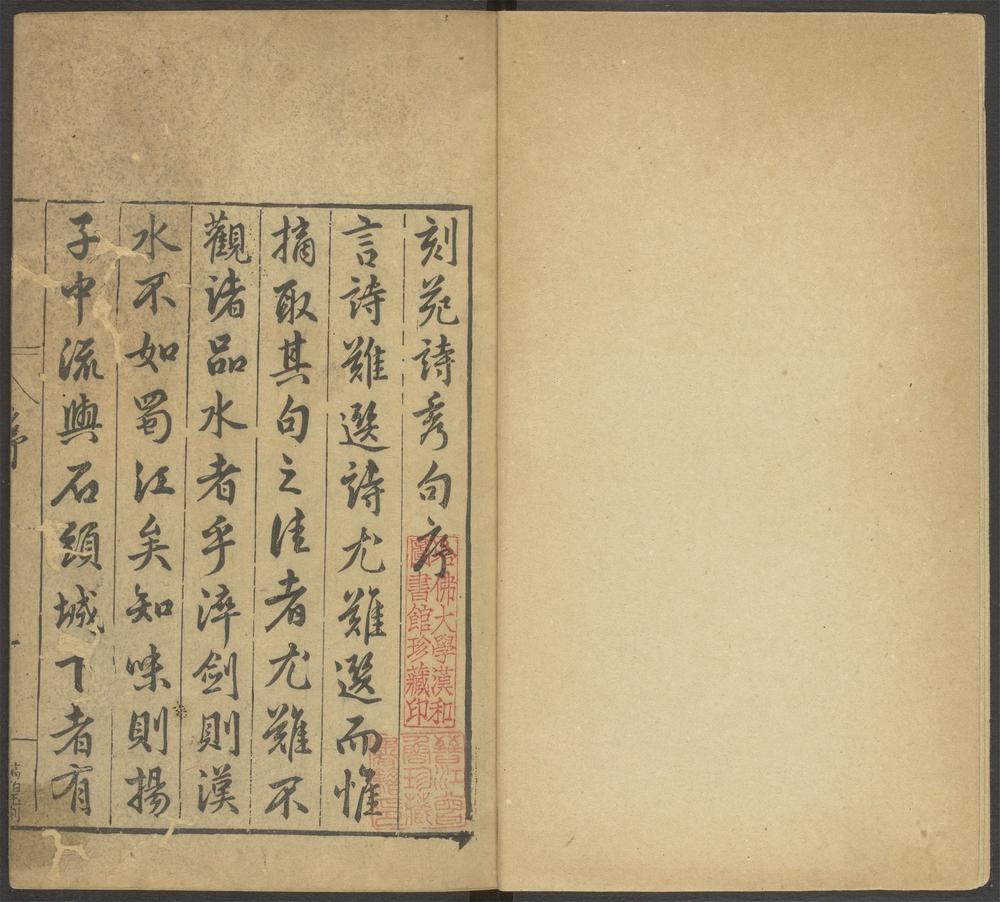 刻苑詩秀句序
言詩難選詩尤難選而惟
摘取其句之佳者尤難不
觀諸品水者乎淬劍則漢
水不如蜀江矣知味則揚
子中流與石頭城下者有
序
一
哈佛大學漢和
圖書館珍藏印